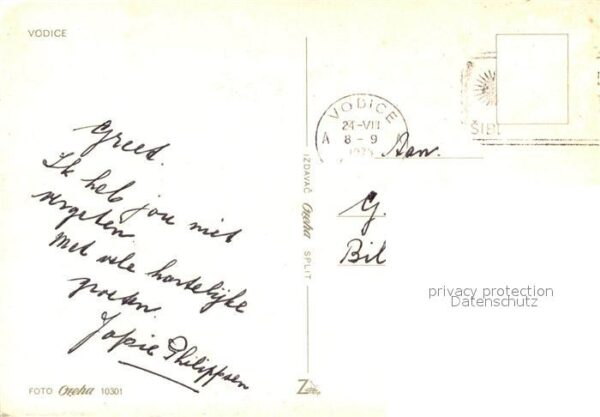 VODICE
Greet.
Ik heb jou niet
vergeten.
Met vele hartelijke
groeten.
Jopie Philippsen
FOTO Ozeha 10301
IZDAVAČ Ozeha SPLIT
VODICE
24-VII
A 8-9
ŠIB
Aan.
G.
Bil
privacy protection
Datenschutz